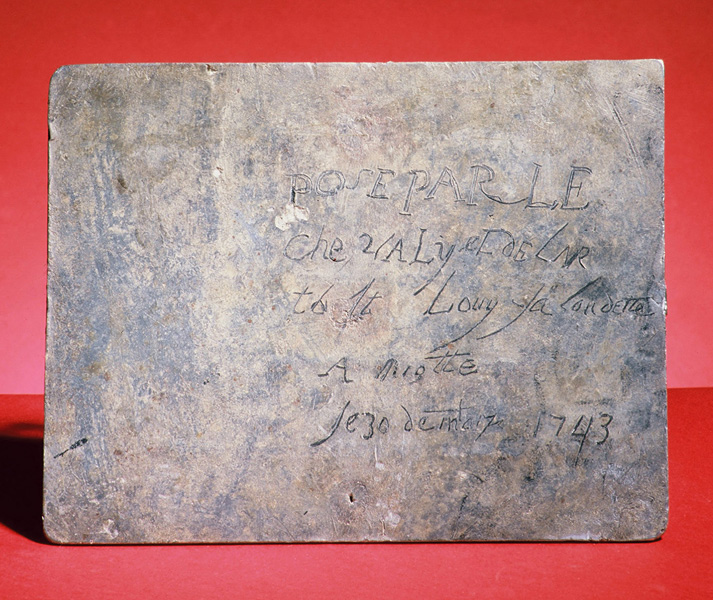 POSE PAR LE
Che VALyet DE LaVR
to St Louy la Londette
A miotte
le 30 de mars 1743